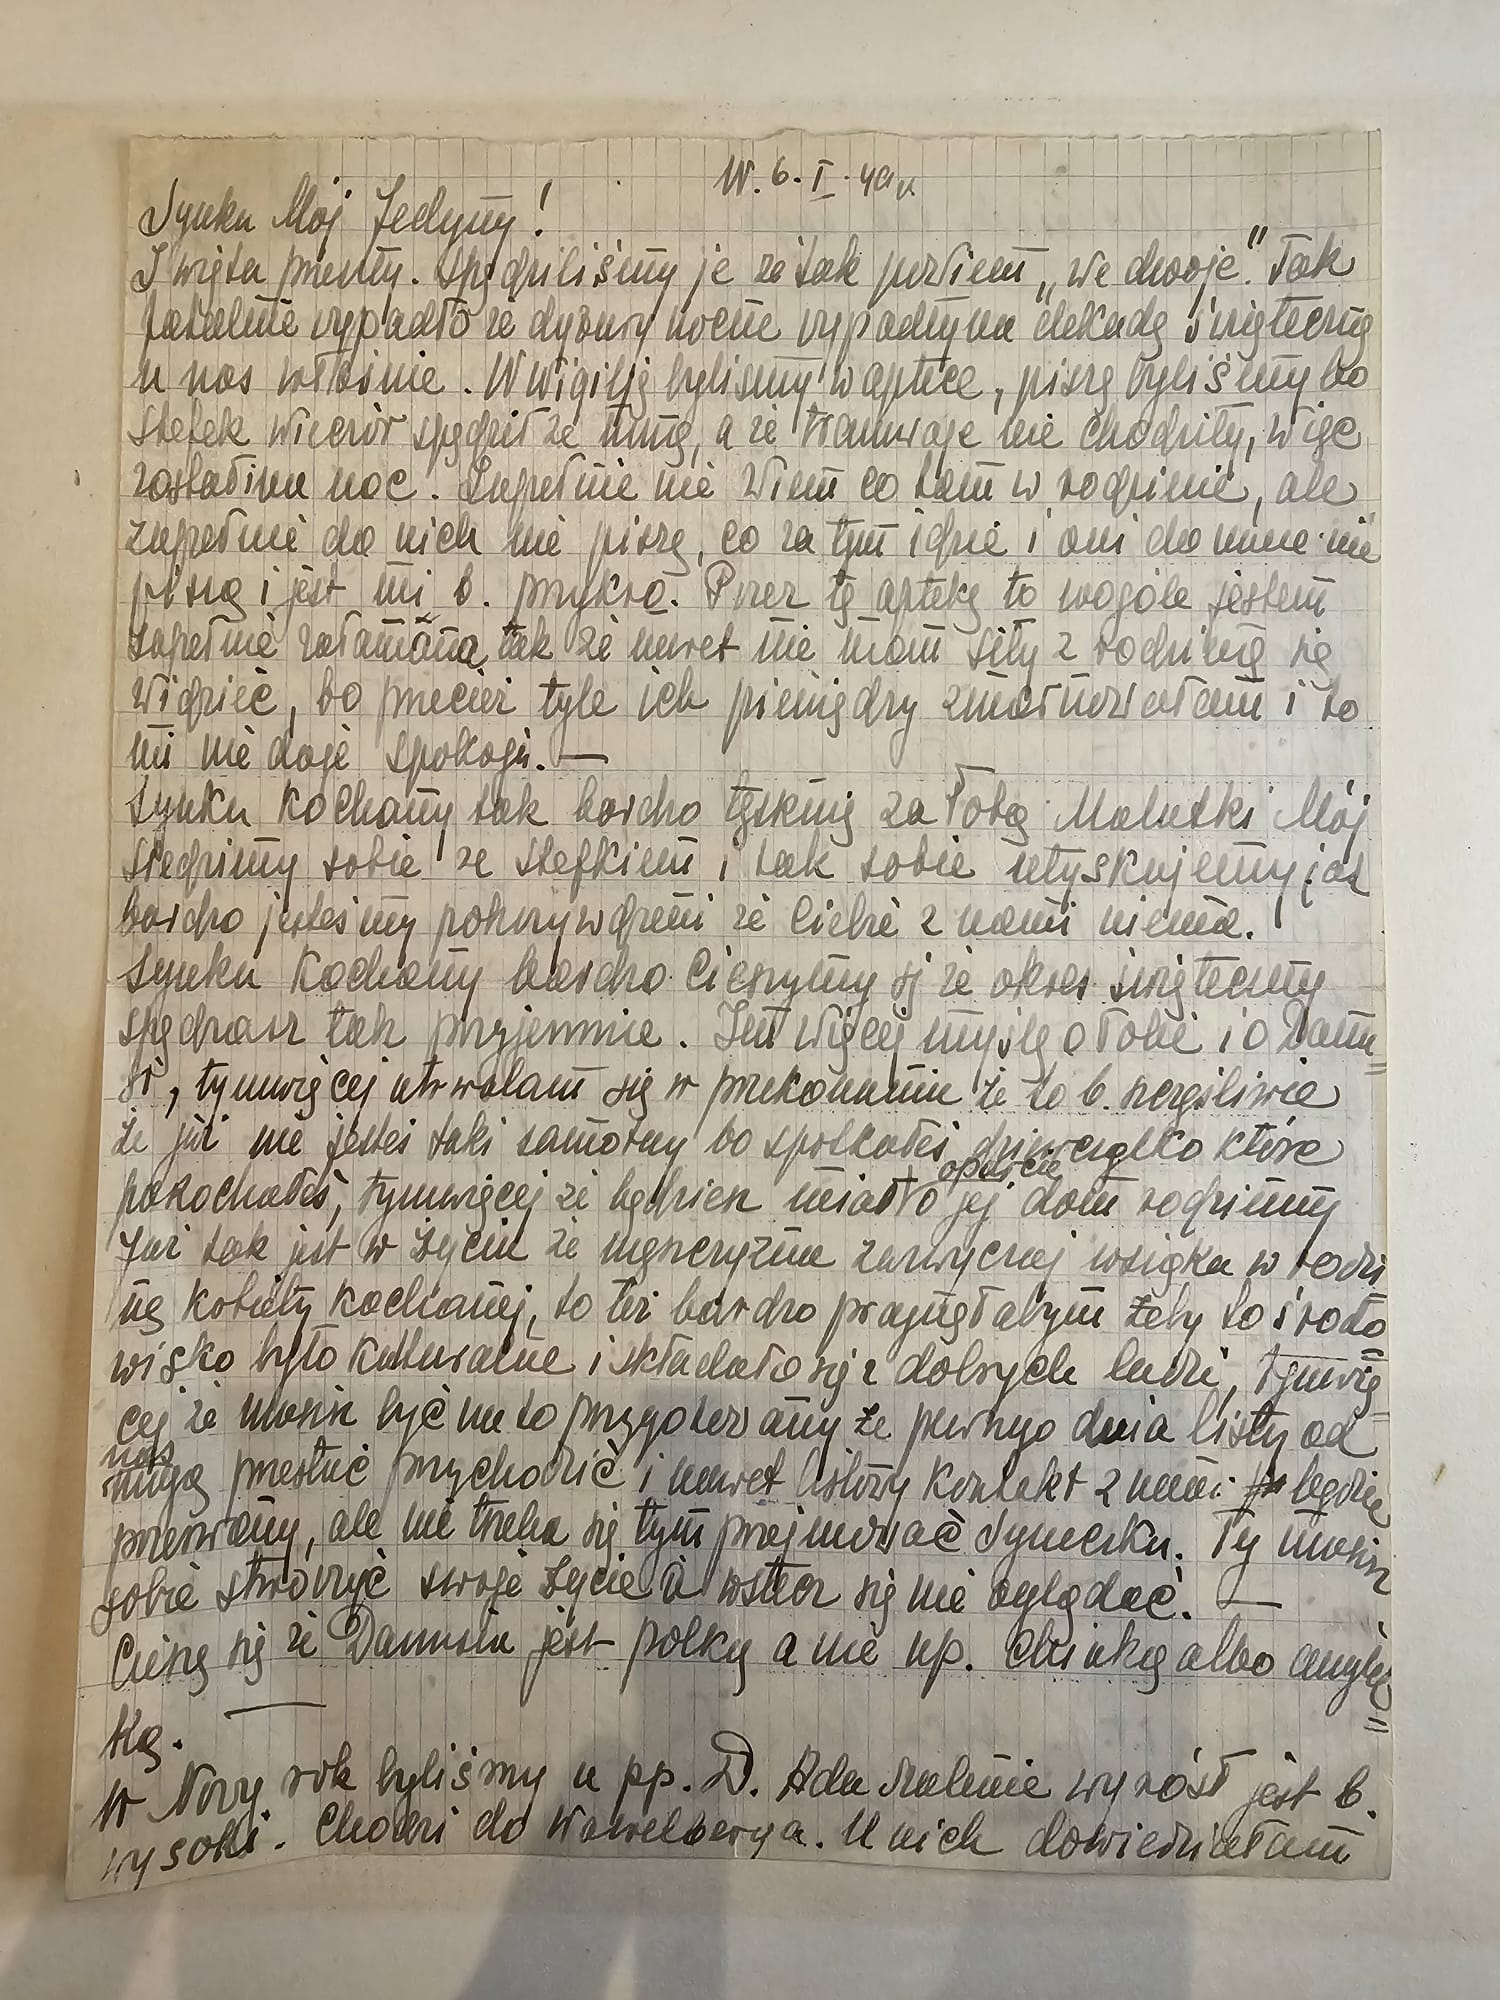 W. 6. I. 49 r.
Synku Mój Jedyny!
I święta przeszły. Spędziliśmy je że tak powiem „we dwoje”. Tak
fatalnie wypadło że dyżury nocne wypadły na dekadę świąteczną
u nas właśnie. W wigilję byliśmy w aptece, piszę byliśmy bo
Stefek wieczór spędził ze mną, a że tramwaje nie chodziły, więc
został i na noc. Zupełnie nie wiem co tam w rodzinie, ale
zupełnie do nich nie piszę, co za tym idzie i oni do mnie nie
piszą i jest mi b. przykro. Przez tę aptekę to wogóle jestem
zupełnie załamana tak że nawet nie mam siły z rodziną się
widzieć, bo przecież tyle ich pieniędzy zmarnowałam i to
mi nie daje spokoju. —
Synku kochany tak bardzo tęsknię za Tobą Malutki Mój
siedzimy sobie ze Stefkiem i tak sobie utyskujemy jak
bardzo jesteśmy pokrzywdzeni że Ciebie z nami niema.
Synku Kochany bardzo cieszymy się że okres świąteczny
spędzasz tak przyjemnie. Im więcej myślę o Tobie i o Danu=
si, tymwięcej utrwalam się w przekonaniu że to b. szczęśliwie
że już nie jesteś taki samotny bo spotkałeś dziewczątko które
pokochałeś, tymwięcej że będziesz miał oparcie o jej dom rodzinny
Już tak jest w życiu że mężczyzna zazwyczaj wsiąka w rodzi
nę kobiety kochanej, to też bardzo pragnęłabym żeby to środo=
wisko było kulturalne i składało się z dobrych ludzi, tymwię=
cej że musisz być na to przygotowany że pewnego dnia listy od
nas mogą przestać przychodzić i nawet listowy kontakt z nami będzie
przerwany, ale nie trzeba się tym przejmować Syneczku. Ty musisz
sobie stworzyć swoje życie i wstecz się nie oglądać. —
Cieszę się że Danusia jest polką a nie np. Chinką albo angiel=
ką. —
W Nowy rok byliśmy u pp. D. Ada szalenie wyrósł jest b.
wysoki. Chodzi do Wawelberga. U nich dowiedziałam